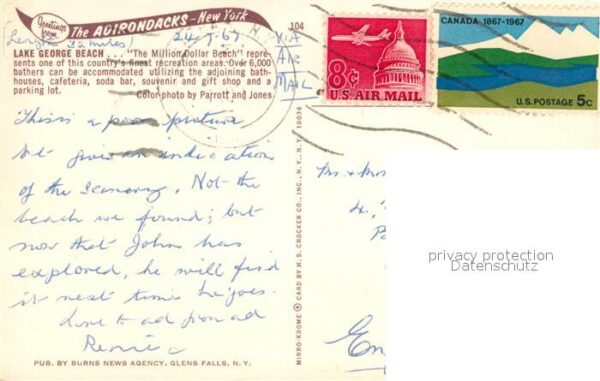 Greetings from
The ADIRONDACKS - New York
104
Length 32 miles
24-7-67
VIA
AIR
MAIL
LAKE GEORGE BEACH . . . "The Million Dollar Beach" repre-
sents one of this country's finest recreation areas. Over 6,000
bathers can be accommodated utilizing the adjoining bath-
houses, cafeteria, soda bar, souvenir and gift shop and a
parking lot.
Colorphoto by Parrott and Jones
8c
U.S. AIR MAIL
CANADA 1867-1967
U.S. POSTAGE 5c
This is a poor picture
but gives an indication
of the scenery. Not the
beach we found; but
now that John has
explored, he will find
it next time he goes.
Love to all from all
Renée
MIRRO-KROME ® CARD BY H. S. CROCKER CO., INC., N. Y., N. Y. 10036
Mrs & Miss
privacy protection
Datenschutz
PUB. BY BURNS NEWS AGENCY, GLENS FALLS, N. Y.